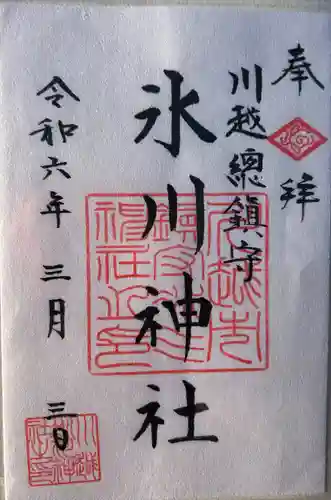 奉拜
川越總鎮守
氷川神社
令和六年三月三日